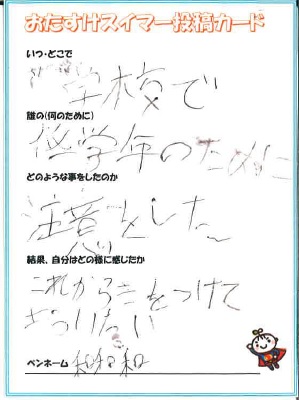 おたすけスイマー投稿カード
いつ・どこで
学校で
誰の(何のために)
低学年のために
どのような事をしたのか
注意をした
結果、自分はどの様に感じたか
これから気をつけて
ペンネーム